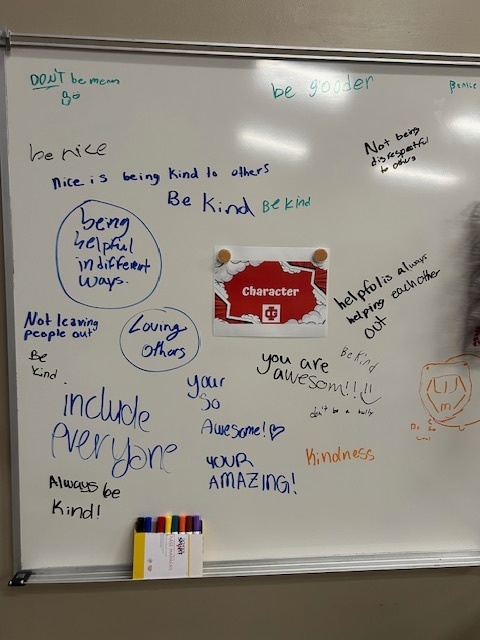 DON'T be mean
be gooder
Be nice
be nice
Not being
disrespectful
to others
Nice is being kind to others
Be Kind
Be kind
being
helpful
in different
ways.
Character
helpful is always
helping each other
out
Not leaving
people out
Loving
Others
Be
Kind
you are
awesom!!!
Be Kind
don't be a bully
include
everyone
your
So
Awesome!
YOUR
AMAZING!
Kindness
Always be
Kind!